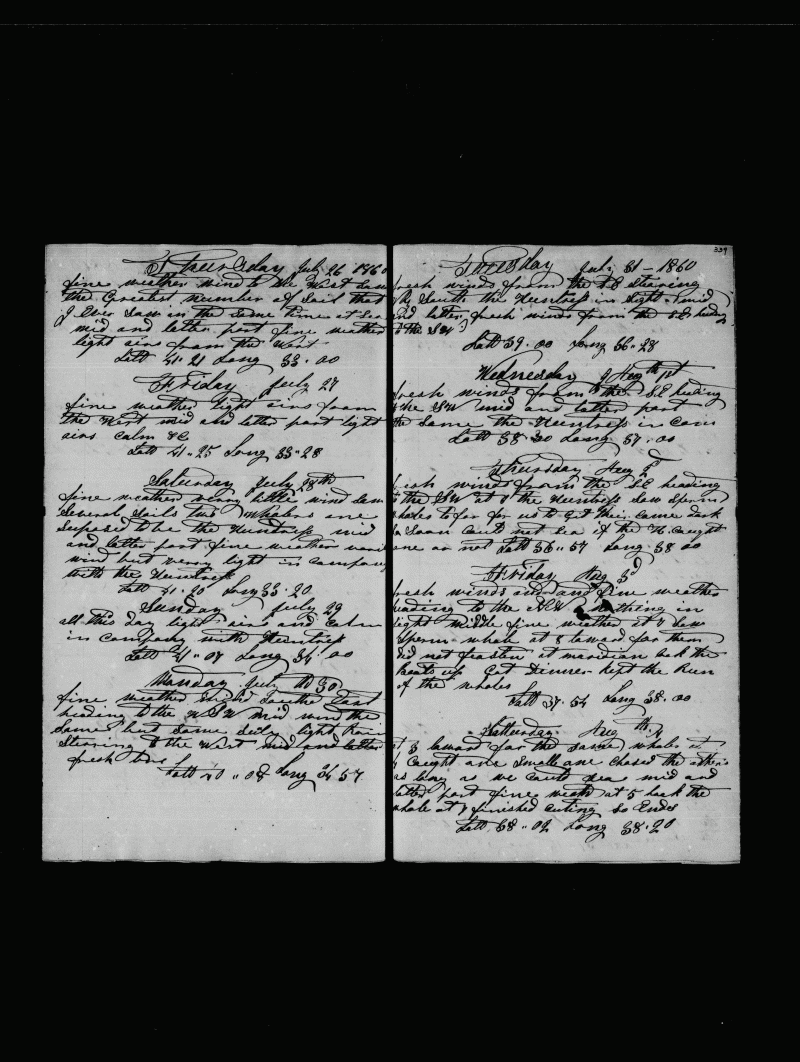 Thursday July 26 1860
fine weather wind to the West Saw
the Greatest number of Sail that
I Ever Saw in the Same time at Sea
mid and latter part fine weather
light airs from the West
Latt 41.21 Long 33.00
Friday July 27
fine weather light airs from
the West mid and latter part light
airs calm &c
Latt 41.25 Long 33.28
Saturday July 28th
fine weather very little wind saw
Several Sails two Whalers one
Suposed to be the Huntress mid
and latter part fine weather
wind but verry light in Company
with the Huntress
Latt 41.20 Long 33.20
Sunday July 29
all this day light airs and Calm
in Company with Huntress
Latt 41.07 Long 34.00
Monday July th 30
fine weather wind to the East
heading to the WSW mid
Same but Some light Rain
Steering to the West mid and latter
fresh
Latt 40.08 Long 34 57
339
Tuesday July 31 - 1860
fresh winds from the SE Stearing
the South the Huntress in Sight mid
and latter fresh winds from the SE heading
to the SW
Latt 39.00 Long 36.28
Wednesday Aug 1st
fresh winds from the SE heading
the SW mid and latter part
the Same the Huntress in Com
Latt 38.30 Long 37.00
Thursday Aug 2d
fresh winds from the SE heading
to the SW at the Huntress Saw Sperm
whales to far for us to Get their came dark
to Soon Cant not Sea if the H. Caught
one or not Latt 36.57 Long 38 00
Friday Aug 3d
fresh winds and fine weather
heading to the nothing in
Sight middle fine weather at 7 Saw
Sperm whale at 8 laward for them
did not fasten at maridian took the
boats up Got Dinner Kept the Run
of the whales
Latt 37.54 Long 38.00
Satturday Aug th 4
at 3 laward for the Same whales
Caught one Small one Chased the others
as long as we Could Sea mid and
latter part fine weath at 5 took the
whale at finished cuting So Ends
Latt 38.02 Long 38.20